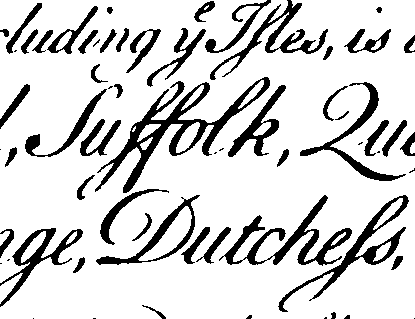 cluding yͤ Iſles, is
, Suffolk, Que
nge, Dutcheſs,